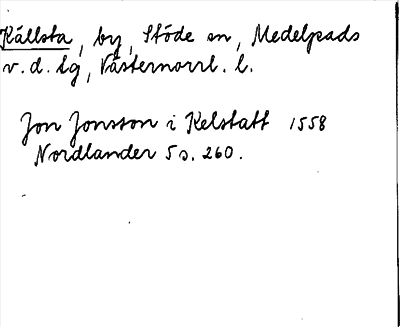 Källsta, by, Stöde sn, Medelpads
v. d. tg, Västernorrl. l.
Jon Jonsson i Kelstatt 1558
Nordlander 5 s. 260.